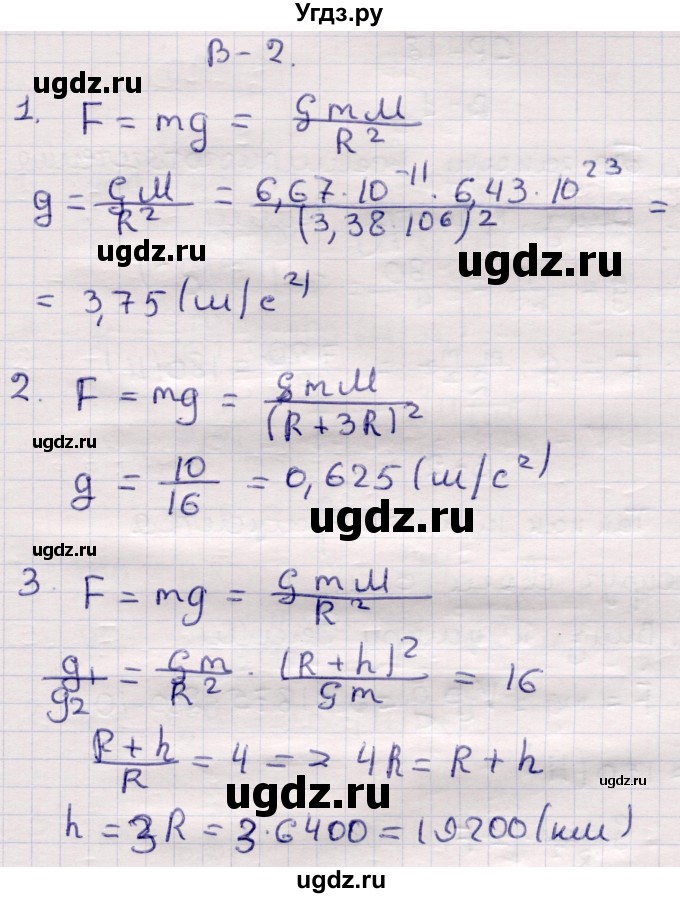 Угдз.ру
В-2.
1. F = mg = GmM/R²
g = GM/R² = 6,67·10⁻¹¹·6,43·10²³/(3,38·106)² =
ugdz.ru
ugdz.ru
ugdz.ru
= 3,75 (м/с²)
2. F = mg = GmM/(R+3R)²
ugdz.ru
g = 10/16 = 0,625 (м/с²)
ugdz.ru
ugdz.ru
3. F = mg = GmM/R²
g₁/g₂ = Gm/R² · (R+h)²/Gm = 16
(R+h)/R = 4 => 4R = R+h
ugdz.ru
ugdz.ru
h = 3R = 3·6400 = 19200 (км)
ugdz.ru